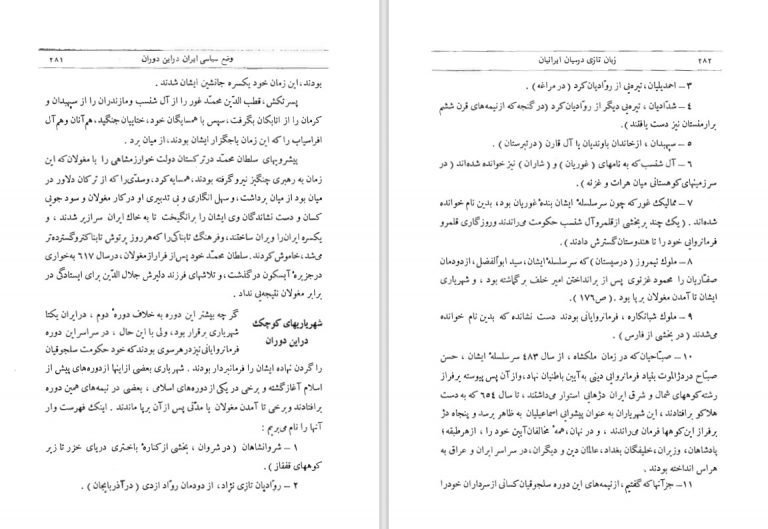 وضع سیاسی ایران دراین دوران
۲۸۱
بودند، این زمان خود یکسره جانشین ایشان شدند .
پسر تکش، قطب الدّین محمّد غور را از آل شنسب ومازندران را از سپهبدان و
کرمان را از اتابکان بگرفت، سپس با همسایگان خود، ختاییان جنگید، هم‌آنان وهم آل
افراسیاب را که این زمان باجگزار ایشان بودند، از میان برد .
پیشرویهای سلطان محمّد درترکستان دولت خوارزمشاهی را با مغولان که این
زمان به رهبری چنگیز نیرو گرفته بودند، همسایه کرد، وسدّی را که از ترکان دلاور در
میان بود از میان برداشت، و سهل انگاری و بی تدبیری او در کار مغولان و سود جویی
کسان و دست نشاندگان وی ایشان را برانگیخت تا به خاک ایران سرازیر شدند ، و
یکسره ایران را ویران ساختند، وفرهنگ تابناکی را که هر روز پرتوش تابناکتر وگسترده‌تر
می‌شد، خاموش کردند. سلطان محمّد خود پس از فرار از مغولان، درسال ۶۱۷ به خواری
درجزیرهٔ آبسکون درگذشت، و تلاشهای فرزند دلیرش جلال الدّین برای ایستادگی در
برابر مغولان نتیجه‌یی نداد .
شهریاریهای کوچک
دراین دوران
گر چه بیشتر این دوره به خلاف دورهٔ دوم ، درایران یکتا
شهریاری برقرار بود، ولی با این حال ، در سراسر این دوره
فرمانروایانی نیز درهرسوی بودند که خود حکومت سلجوقیان
را گردن نهاده ایشان را فرمانبردار بودند . شهریاری بعضی ازاینها ازدوره‌های پیش از
اسلام آغاز گشته و برخی در یکی ازدوره‌های اسلامی ، بعضی در نیمه‌های همین دوره
برافتادند وبرخی تا آمدن مغولان یا مدّتی پس از آن برپا ماندند . اینک فهرست وار
آنها را نام می‌بریم :
۱ – شروانشاهان ( در شروان ، بخشی از کنارهٔ باختری دریای خزر تا زیر
کوههای قفقاز ) .
۲ – روّادیان تازی نژاد، از دودمان روّاد ازدی ( در آذربایجان ) .
۲۸۲
زبان تازی درمیان ایرانیان
۳ – احمدیلیان، تیره‌یی از روّادیان کرد ( در مراغه ) .
۴ – شدّادیان ، تیره‌یی دیگر از روّادیان کرد (در گنجه که از نیمه‌های قرن ششم
بر ارمنستان نیز دست یافتند ) .
۵ – سپهبدان ، از خاندان باوندیان یا آل قارن ( در تبرستان ) .
۶ – آل شنسب که به نامهای ( غوریان ) و ( شاران ) نیز خوانده شده‌اند ( در
سرزمینهای کوهستانی میان هرات و غزنه ) .
۷ – ممالیک غور که چون سرسلسلهٔ ایشان بندهٔ غوریان بود، بدین نام خوانده
شده‌اند . ( یک چند بر بخشی از قلمرو آل شنسب حکومت می‌راندند و روزگاری قلمرو
فرمانروایی خود را تا هندوستان گسترش دادند ) .
۸ – ملوک نیمروز (درسیستان) که سرسلسلهٔ ایشان، سید ابوالفضل، از دودمان
صفّاریان را محمود غزنوی پس از برانداختن امیر خلف برگماشته بود ، و شهریاری
ایشان تا آمدن مغولان برپا بود . ( ص۱۷۶) .
۹ – ملوک شبانکاره ، فرمانروایانی بودند دست نشانده که بدین نام خوانده
می‌شدند ( در بخشی از فارس ) .
۱۰ – صبّاحیان که در زمان ملکشاه ، از سال ۴۸۳ سرسلسلهٔ ایشان ، حسن
صبّاح در دژالموت بنیاد فرمانروایی دینی به آیین باطنیان نهاد، واز آن پس پیوسته بر فراز
رشته کوههای شمال و شرق ایران دژهایی استوار می‌داشتند ، تا سال ۶۵۴ که به دست
هلاکو برافتادند ، این شهریاران به عنوان پیشوایی اسماعیلیان به ظاهر برسد و پنجاه دژ
بر فراز این کوهها فرمان می‌راندند ، و در نهان، همهٔ مخالفان آیین خود را ، از هر طبقه؛
پادشاهان، وزیران، خلیفگان بغداد، عالمان دین و دیگران، در سراسر ایران و عراق به
هراس انداخته بودند .
۱۱ – جز آنها که گفتیم، از نیمه‌های این دوره سلجوقیان کسانی از سرداران خود را